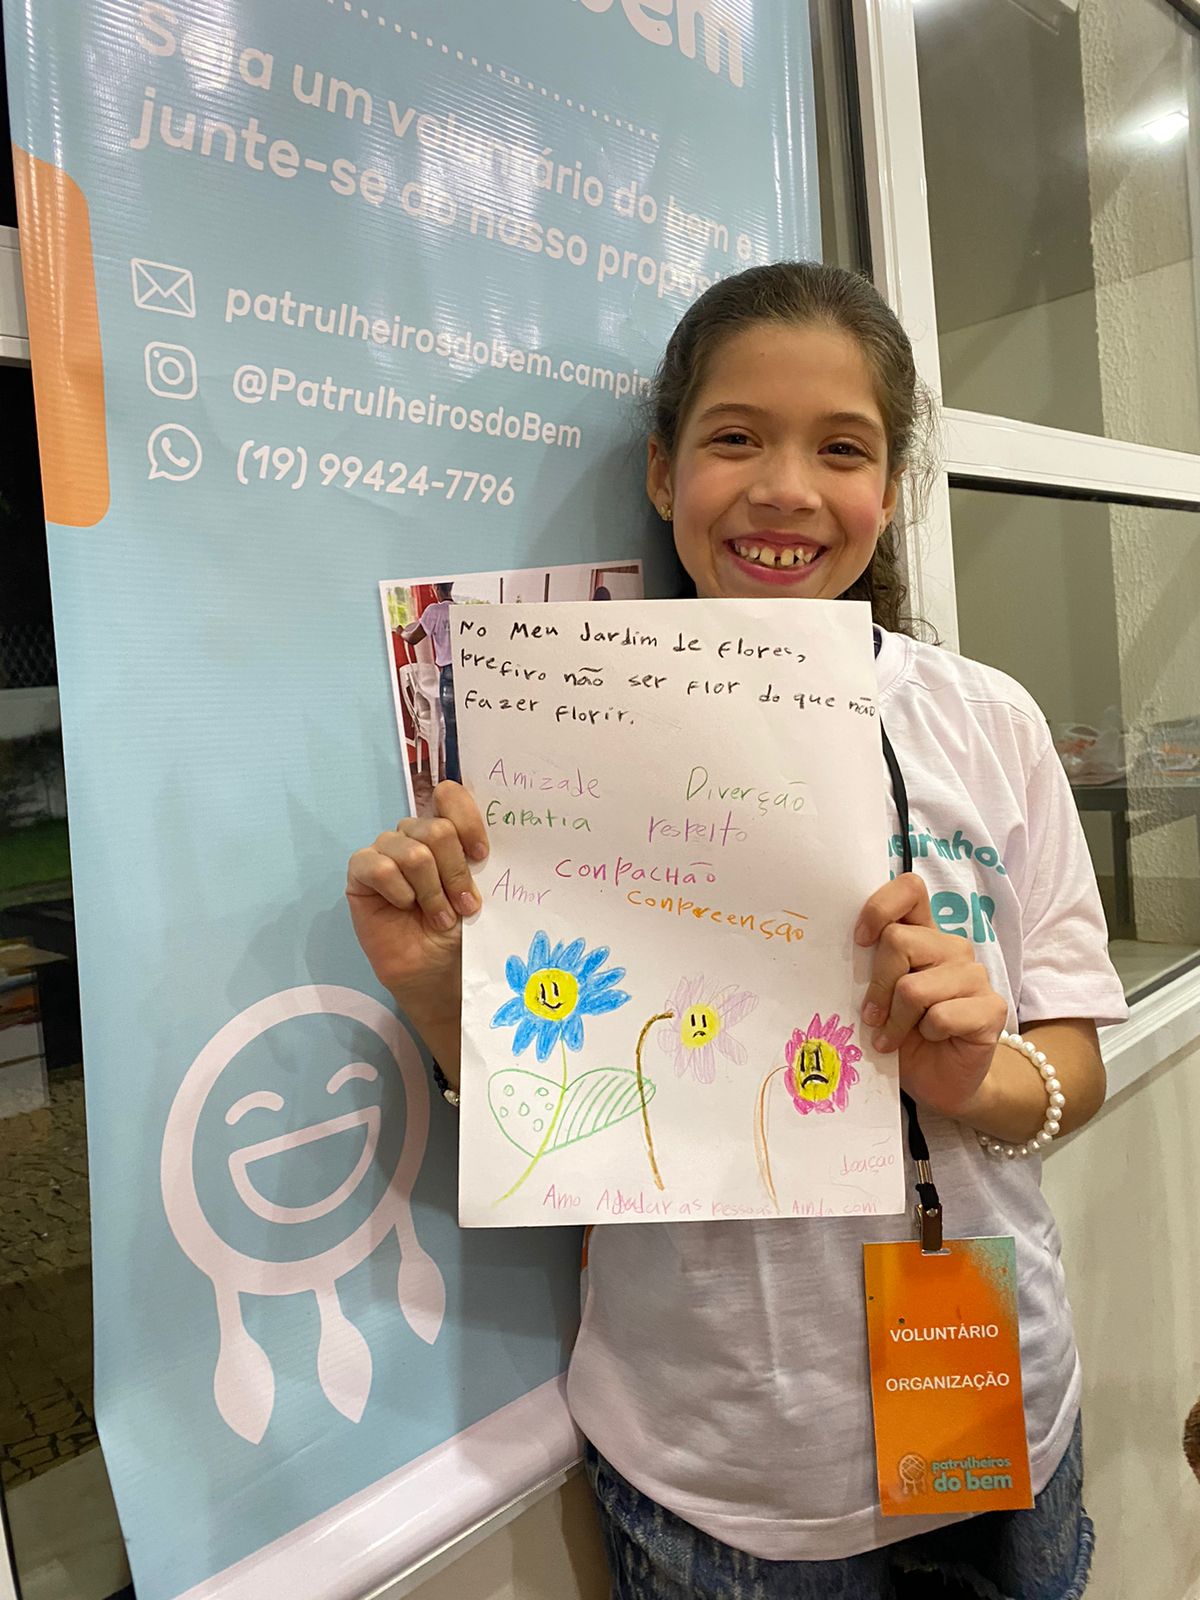 bem
Seja um voluntário do bem e
junte-se ao nosso
patrulheirosdobem.campin
@PatrulheirosdoBem
(19) 99424-7796
No Meu Jardim de Flores,
prefiro não ser Flor do que não
Fazer Florir.
Amizade Diverção
Enpatia respeito
conpachão
Amor conpreenção
doação
Amo Ajudar as pessoas Ainda com
VOLUNTÁRIO
ORGANIZAÇÃO
patrulheiros
do bem